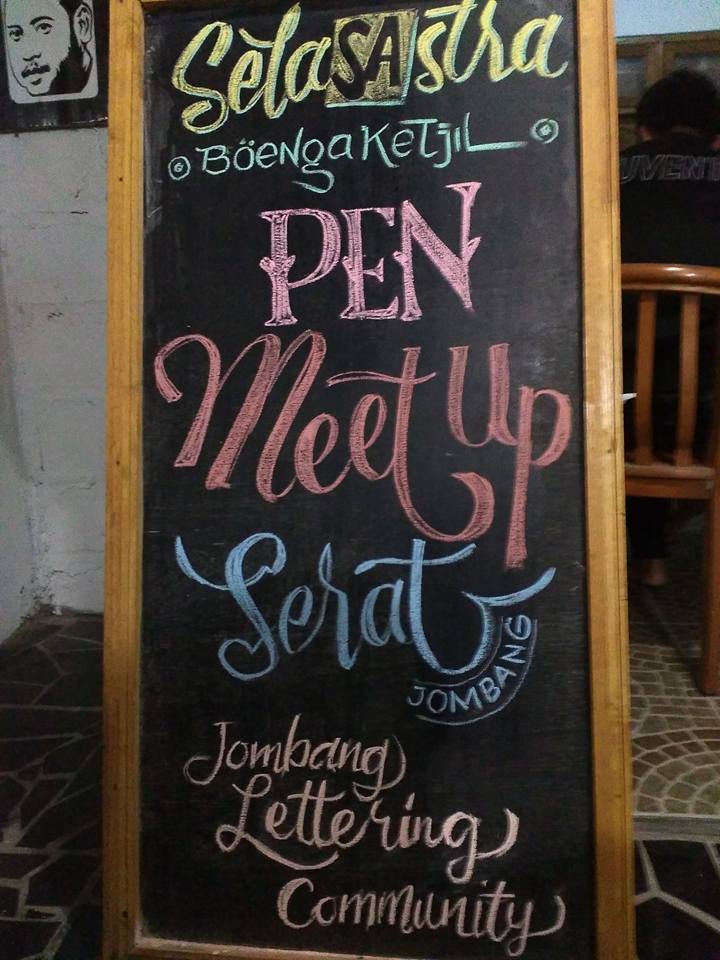 SelaSAstra
BöENgaKeTjiL
PEN
Meet Up
Serat
JOMBANG
Jombang
Lettering
Community
UVENT